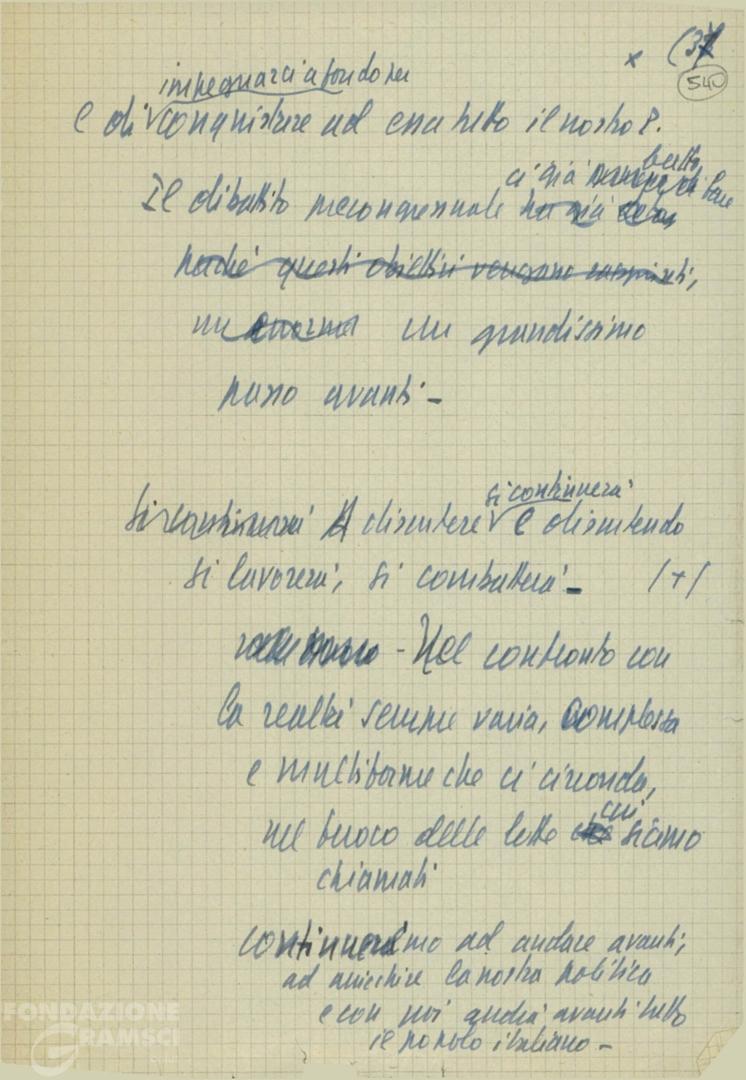 (37
x
540
impegnarci a fondo per
e di conquistare ad essa tutto il nostro P.
ci già fatto fare
Il dibattito precongressuale ha già
perché questi obiettivi vengano raggiunti,
un enorme un grandissimo
passo avanti -
si continuerà
Si continuerà A discutere e discutendo
si lavorerà, si combatterà - /+/
- Nel confronto con
la realtà sempre varia, complessa
e multiforme che ci circonda,
cui
nel fuoco delle lotte che siamo
chiamati
continueremo ad andare avanti,
ad arricchire la nostra politica
e con noi andrà avanti tutto
il popolo italiano -
FONDAZIONE
GRAMSCI